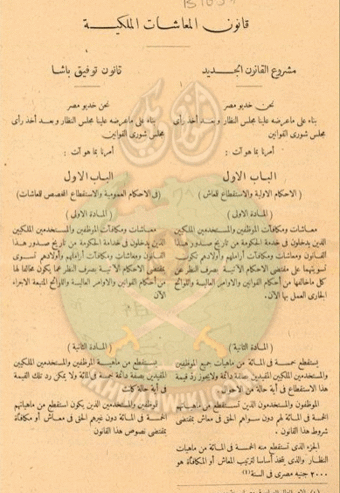 قانون المعاشات الملكية
مشروع القانون الجديد
نحن خديو مصر
بناء على ماعرضه علينا مجلس النظار وبعد أخذ رأى
مجلس شورى القوانين
أمرنا بما هو آت :
الباب الاول
( الاحكام الاولية والاستقطاع للمعاش )
( المادة الاولى )
معاشات ومكافآت الموظفين والمستخدمين الملكيين
الذين يدخلون فى خدمة الحكومة من تاريخ صدور هذا
القانون ومعاشات ومكافآت أراملهم وأولادهم تكون
تسويتها على مقتضى الأحكام الآتية بصرف النظر عن
كل ماخالفها من أحكام القوانين والاوامر العالية واللوائح
الجارى العمل بها الآن
( المادة الثانية )
يستقطع خمسة فى المائة من ماهيات جميع الموظفين
والمستخدمين الملكيين المقيدين بصفة دائمة ولايجوز رد قيمة
هذا الاستقطاع فى أية حالة من الاحوال
الموظفون والمستخدمون الذين تستقطع من ماهياتهم
الخمسة فى المائة لهم دون سواهم الحق فى معاش بمقتضى
شروط هذا القانون
الجزء الذى تستقطع منه الخمسة فى المائة من ماهيات
النظار والذى يتخذ أساسا لترتيب المعاش أو المكافأة هو
٢٠٠٠ جنيه مصرى فى السنة (١)
قانون توفيق باشا
نحن خديو مصر
بناء على ماعرضه علينا مجلس النظار وبعد أخذ رأى
مجلس شورى القوانين
أمرنا بما هو آت :
الباب الاول
( فى الاحكام العمومية والاستقطاع المخصص للمعاشات )
( المادة الاولى )
معاشات ومكافآت الموظفين والمستخدمين الملكيين
الذين يدخلون فى خدمة الحكومة من تاريخ صدور هذا
القانون ومعاشات ومكافآت أراملهم وأولادهم تسوى
بمقتضى الأحكام الآتية بصرف النظر عما يكون مخالفا لها
من أحكام القوانين والاوامر العالية واللوائح المتبعة الاجراء
الآن
( المادة الثانية )
يستقطع من ماهية الموظفين والمستخدمين الملكيين
المقيدين بصفة دائمة خمسة فى المائة ولا يمكن رد تلك القيمة
فى أية حالة كانت
الموظفين والمستخدمين الذين يكون استقطع من ماهياتهم
الخمسة فى المائة دون غيرهم الحق فى معاش أو مكافأة
بمقتضى نصوص هذا القانون